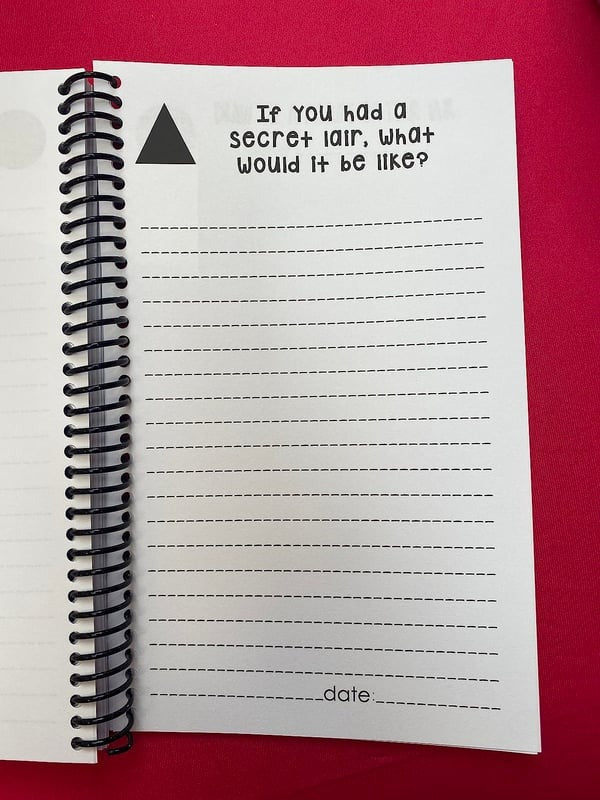 If you had a
secret lair, what
would it be like?
date: